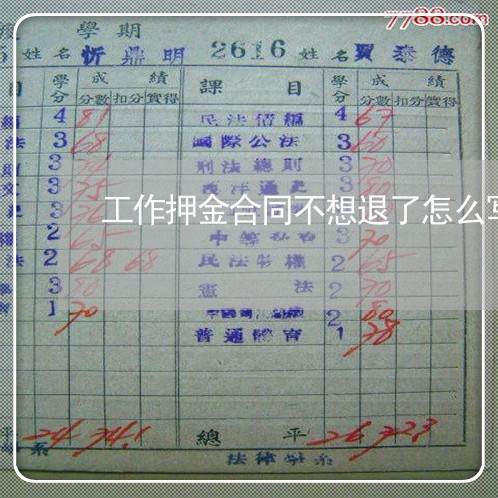 7788.com
學期
姓名忻鼎明 2616 姓名賈泰德
目 學分 成績 分數 扣分 實得 課目 學分 成績 分數 扣分 實得
4 81 民法債編 4 67
法 3 68 國際公法 3 60
3 刑法總則 3 70
3 75 西洋通史 3 80
工作押金合同不想退了怎么写
2 65 3 70
法 2 68 68 民法物權 2 65
3 80 憲法 2
1 70 2 80
普通體育 1 78
平 24 74.1 總平 26 72.3
系 法律學系